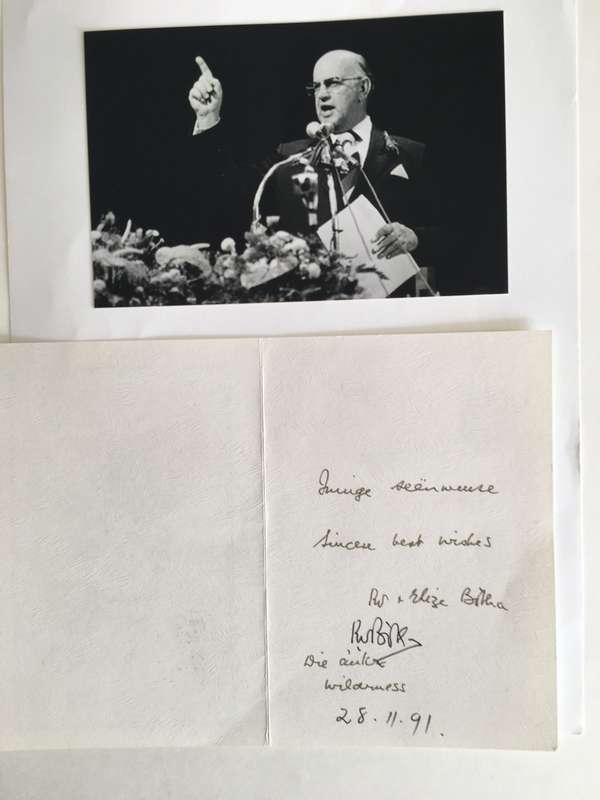 Innige seënwense
Sincere best wishes
PW & Elize Botha
PWBotha
Die Anker
Wilderness
28.11.91.